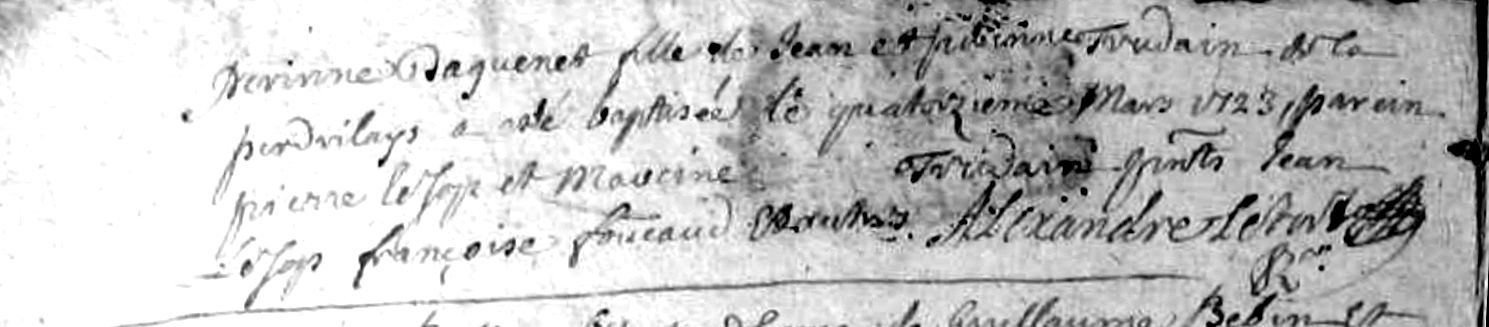 perinne Daguenet fille de Jean et perinne Trudain de la
perdrilays a esté baptisée le quatorzieme Mars 1723, parein
pierre lesop et Mareine Trudain pnts Jean
Lesop françoise foucaud et autres. Alexandre Letort
Rr
Guillaume Bebin et